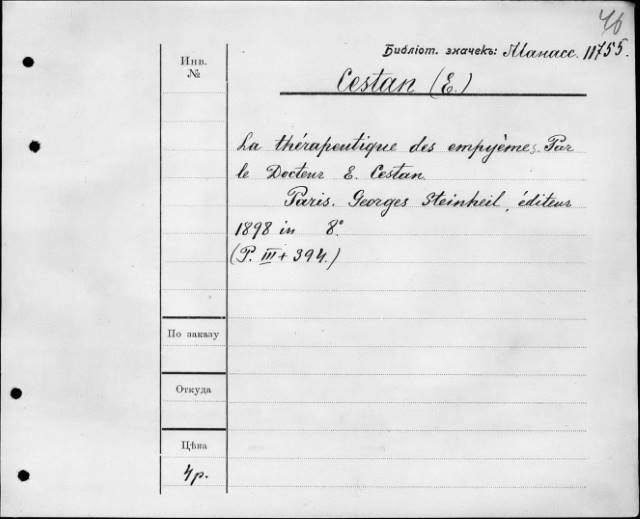 46
Библіот. значекъ: Манасс. 11755.
Инв.
№
Cestan (E.)
La thérapeutique des empyèmes. Par
le Docteur E. Cestan
Paris. Georges Steinheil, éditeur
1898 in 8°.
(P. III + 394.)
По заказу
Откуда
Цѣна
4р.